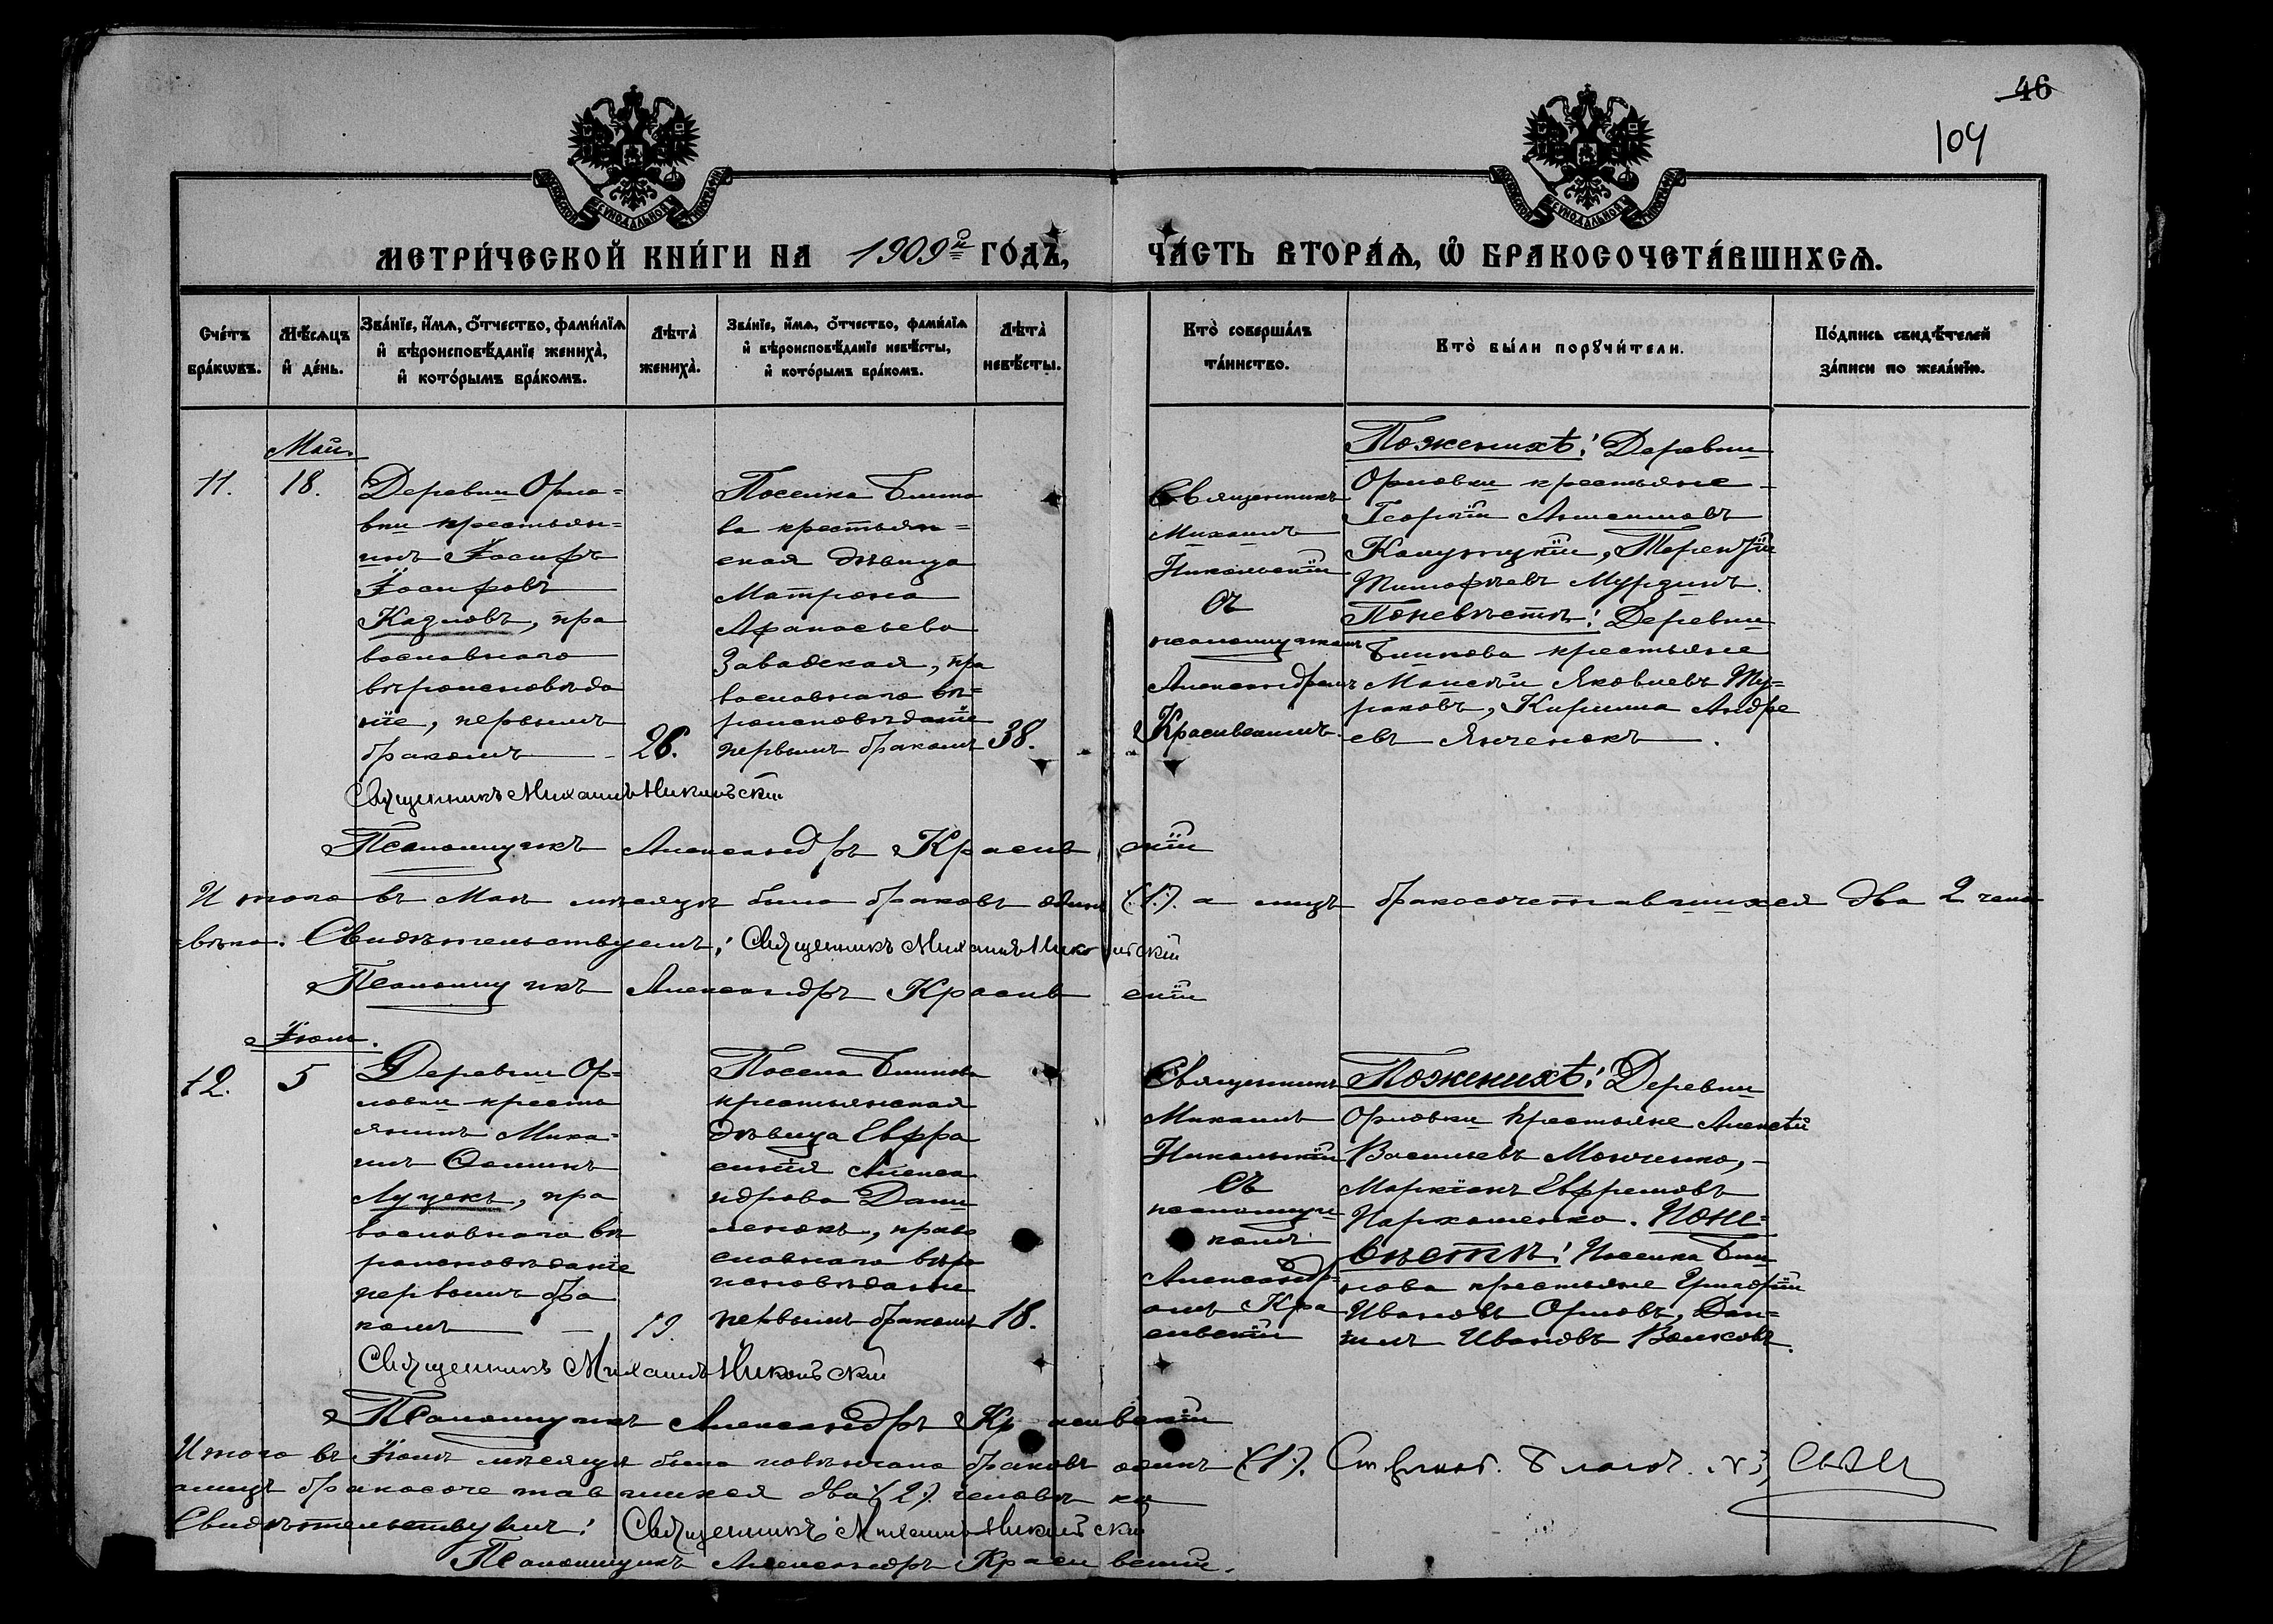 46
109
МЕТРИ́ЧЕСКОЙ КНИ́ГИ НА 1909й ГО́ДЪ,
ЧА́СТЬ ВТОРА́Ѧ, Ѡ҆ БРАКОСОЧЕТА́ВШИХСѦ.
Сче́тъ бра́кѡвъ.
Мѣ́сѧцъ и҆ де́нь.
Зва́нїе, и҆́мѧ, ѻ҆́тчество, фами́лїѧ
и҆ вѣроисповѣ́данїе жениха̀,
и҆ кото́рымъ бра́комъ.
Лѣта̀ жениха̀.
Зва́нїе, и҆́мѧ, ѻ҆́тчество, фами́лїѧ
и҆ вѣроисповѣ́данїе невѣ́сты,
и҆ кото́рымъ бра́комъ.
Лѣта̀ невѣ́сты.
Кто̀ соверша́лъ
та́инство.
Кто̀ бы́ли порꙋчи́тели.
По́дпись свидѣ́телей
за́писи по жела́нїю.
Май.
11.
18.
Деревни Орло=
вки крестьян=
инъ Іосифъ
Іосифовъ
Козловъ, пра
вославнаго
вѣроисповѣда
нія, первымъ
бракомъ
26.
Поселка Блино
ва крестьян=
ская дѣвица
Матрона
Афанасьева
Завадская, пра
вославнаго вѣ=
роисповѣданія
первымъ бракомъ
38.
Священникъ
Михаилъ
Никольскій
съ
псаломщикомъ
Александромъ
Красивскимъ
По женихѣ: Деревни
Орловки крестьяне
Георгій Антоновъ
Калужскій, Терентій
Тимофѣевъ Мурзинъ.
По невѣстѣ: Деревни
Блинова крестьяне
Моисей Яковлевъ Ту=
раковъ, Кирилла Андре
евъ Янченокъ.
Священникъ Михаилъ Никольскій
Псаломщикъ Александръ Красивскій
Итого въ Маѣ мѣсяцѣ было браковъ одинъ (1). а лицъ бракосочетавшихся два 2 чело
вѣка. Свидѣтельствуемъ: Священникъ Михаилъ Никольскій
Псаломщикъ Александръ Красивскій
Іюнь.
12.
5
Деревни Ор=
ловки кресть
янинъ Миха=
илъ Фоминъ
Луцекъ, пра
вославнаго вѣ
роисповѣданія
первымъ бра
комъ
19.
Поселка Блинова
крестьянская
дѣвица Евфро
синія Алекса
ндрова Дани
ленокъ, право
славнаго вѣро
исповѣданія
первымъ бракомъ
18.
Священникъ
Михаилъ
Никольскій
съ
псаломщи
комъ
Александр=
омъ Кра
сивскій
По женихѣ: Деревни
Орловки крестьяне Алексѣй
Васильевъ Мокченко,
Маркіанъ Евфремовъ
Пархоменко. По не=
вѣстѣ: Поселка Бли
нова крестьяне Григорій
Ивановъ Орловъ, Дан=
іилъ Ивановъ Волковъ.
Священникъ Михаилъ Никольскій
Псаломщикъ Александръ Красивскій
Итого въ Іюнѣ мѣсяцѣ было повѣнчано браковъ одинъ (1).
а лицъ бракосочетавшихся два (2) человѣка
Свидѣтельствуемъ: Священникъ Михаилъ Никольскій
Псаломщикъ Александръ Красивскій.